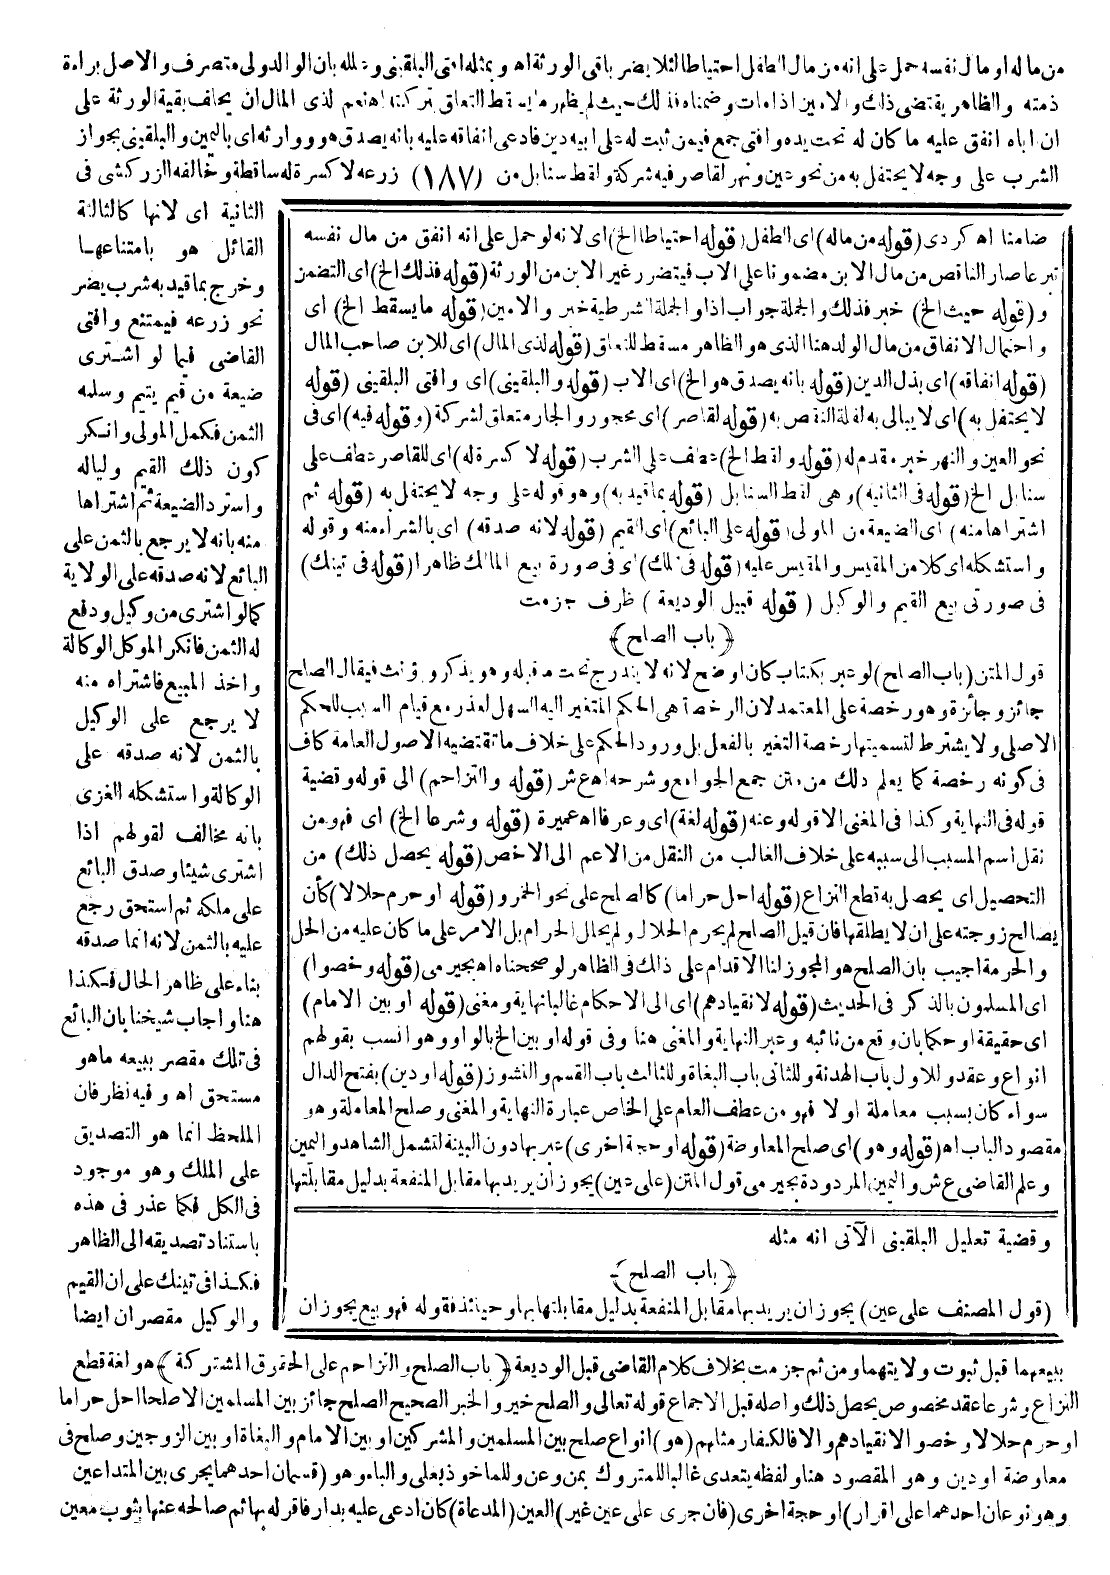 من ماله او مال نفسه حمل على انه من مال الطفل احتياطا لئلا يضر باقى الورثة اه وبمثله افتى البلقينى وعلله بان الوالد ولى متصرف والاصل براءة
ذمته والظاهر يقتضى ذلك والامين اذا مات وضمناه فذلك حيث لم يظهر ما يسقط التعلق بتركته اه نعم لذى المال ان يحلف بقية الورثة على
ان اباه انفق عليه ما كان له تحت يده وافتى جمع فيمن ثبت له على ابيه دين فادعى انفاقه عليه بانه يصدق هو ووارثه اى باليمين والبلقينى بجواز
الشرب على وجه لا يحتفل به من نحو عين ونهر لقاصر فيه شركة ولقط سنابل من (١٨٧) زرعه لا كسرة له ساقطة وخالفه الزركشى فى
الثانية اى لانها كالثالثة
القائل هو بامتناعها
وخرج بما قيد به شرب يضر
نحو زرعه فيمتنع وافتى
القاضى فيما لو اشترى
ضيعة من قيم يتيم وسلمه
الثمن فكمل المولى وانكر
كون ذلك القيم وليا له
واسترد الضيعة ثم اشتراها
منه بانه لا يرجع بالثمن على
البائع لانه صدقه على الولاية
كما لو اشترى من وكيل ودفع
له الثمن فانكر الموكل الوكالة
واخذ المبيع فاشتراه منه
لا يرجع على الوكيل
بالثمن لانه صدقه على
الوكالة واستشكله الغزى
بانه مخالف لقولهم اذا
اشترى شيئا وصدق البائع
على ملكه ثم استحق رجع
عليه بالثمن لانه انما صدقه
بناء على ظاهر الحال فكذا
هنا واجاب شيخنا بان البائع
فى تلك مقصر ببيعه ما هو
مستحق اه وفيه نظر فان
الملحظ انما هو التصديق
على الملك وهو موجود
فى الكل فكما عذر فى هذه
باستناد تصديقه الى الظاهر
فكذا فى تينك على ان القيم
والوكيل مقصران ايضا
ضامنا اه كردى (قوله من ماله) اى الطفل (قوله احتياطا الخ) اى لانه لو حمل على انه انفق من مال نفسه
تبرعا صار الناقص من مال الابن مضمونا على الاب فيتضرر غير الابن من الورثة (قوله فذلك الخ) اى التضمن
و(قوله حيث الخ) خبر فذلك والجملة جواب اذا والجملة الشرطية خبر والامين (قوله ما يسقط الخ) اى
واحتمال الانفاق من مال الولد هنا الذى هو الظاهر مسقط للتعلق (قوله لذى المال) اى للابن صاحب المال
(قوله انفاقه) اى بذل الدين (قوله بانه يصدق هو الخ) اى الاب (قوله والبلقينى) اى وافتى البلقينى (قوله
لا يحتفل به) اى لا يبالى به لقلة النقص به (قوله لقاصر) اى محجور والجار متعلق لشركة (وقوله فيه) اى فى
نحو العين والنهر خبر مقدم له (قوله ولقط الخ) عطف على الشرب (قوله لا كسرة له) اى للقاصر عطف على
سنابل الخ (قوله فى الثانية) وهى لقط السنابل (قوله بما قيد به) وهو قوله على وجه لا يحتفل به (قوله ثم
اشتراها منه) اى الضيعة من المولى (قوله على البائع) اى القيم (قوله لانه صدقه) اى بالشراء منه وقوله
واستشكله اى كلا من المقيس والمقيس عليه (قوله فى تلك) اى فى صورة بيع المالك ظاهرا (قوله فى تينك)
فى صورتى بيع القيم والوكيل (قوله قبيل الوديعة) ظرف جزمت
﴿باب الصلح﴾
قول المتن (باب الصلح) لو عبر بكتاب كان اوضح لانه لا يندرج تحت ما قبله وهو يذكر ويؤنث فيقال الصلح
جائز وجائزة وهو رخصة على المعتمد لان الرخصة هى الحكم المتغير اليه السهل لعذر مع قيام السبب للحكم
الاصلى ولا يشترط لتسميتها رخصة التغير بالفعل بل ورود الحكم على خلاف ما تقتضيه الاصول العامة كاف
فى كونه رخصة كما يعلم ذلك من متن جمع الجوامع وشرحه اه ع ش (قوله والتزاحم) الى قوله وقضية
قوله فى النهاية وكذا فى المغنى الا قوله وعنه (قوله لغة) اى وعرفا اه عميرة (قوله وشرعا الخ) اى فهو من
نقل اسم المسبب الى سببه على خلاف الغالب من النقل من الاعم الى الاخص (قوله يحصل ذلك) من
التحصيل اى يحصل به قطع النزاع (قوله احل حراما) كالصلح على نحو الخمر و(قوله او حرم حلالا) كأن
يصالح زوجته على ان لا يطلقها فان قيل الصلح لم يحرم الحلال ولم يحلل الحرام بل الامر على ما كان عليه من الحل
والحرمة اجيب بان الصلح هو المجوز لنا الاقدام على ذلك فى الظاهر لو صححناه اه بجيرمى (قوله وخصوا)
اى المسلمون بالذكر فى الحديث (قوله لانقيادهم) اى الى الاحكام غالبا نهاية ومغنى (قوله او بين الامام)
اى حقيقة او حكما بان وقع من نائبه وعبر النهاية والمغنى هنا وفى قوله او بين الخ بالواو وهو انسب بقولهم
انواع وعقدوا للاول باب الهدنة وللثانى باب البغاة وللثالث باب القسم والنشوز (قوله او دين) بفتح الدال
سواء كان بسبب معاملة او لا فهو من عطف العام على الخاص عبارة النهاية والمغنى وصلح المعاملة وهو
مقصود الباب اه (قوله وهو) اى صلح المعاوضة (قوله او حجة اخرى) عبر بها دون البينة لتشمل الشاهد واليمين
وعلم القاضى ع ش واليمين المردودة بجيرمى قول المتن (على عين) يجوز ان يريد بها مقابل المنفعة بدليل مقابلتها
وقضية تعليل البلقينى الآتى انه مثله
﴿باب الصلح﴾
(قول المصنف على عين) يجوز ان يريد بها مقابل المنفعة بدليل مقابلتها بها وحينئذ فقوله فهو بيع يجوز ان
ببيعهما قبل ثبوت ولايتهما ومن ثم جزمت بخلاف كلام القاضى قبل الوديعة ﴿باب الصلح والتزاحم على الحقوق المشتركة﴾ هو لغة قطع
النزاع وشرعا عقد مخصوص يحصل ذلك واصله قبل الاجماع قوله تعالى والصلح خير والخبر الصحيح الصلح جائز بين المسلمين الا صلحا احل حراما
او حرم حلالا وخصوا لانقيادهم والا فالكفار مثلهم (هو) انواع صلح بين المسلمين والمشركين او بين الامام والبغاة او بين الزوجين وصلح فى
معاوضة او دين وهو المقصود هنا ولفظه يتعدى غالبا للمتروك بمن وعن وللماخوذ بعلى والباء وهو (قسمان احدهما يجرى بين المتداعين
وهو نوعان احدهما على اقرار) او حجة اخرى (فان جرى على عين غير) العين (المدعاة) كان ادعى عليه بدار فاقر له بها ثم صالحه عنها بثوب معين